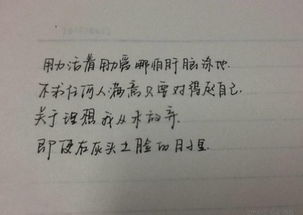 用力活着用力爱哪怕肝脑涂地.
不求任何人满意只要对得起自己.
关于理想我从未放弃.
即使在灰头土脸的日子里.